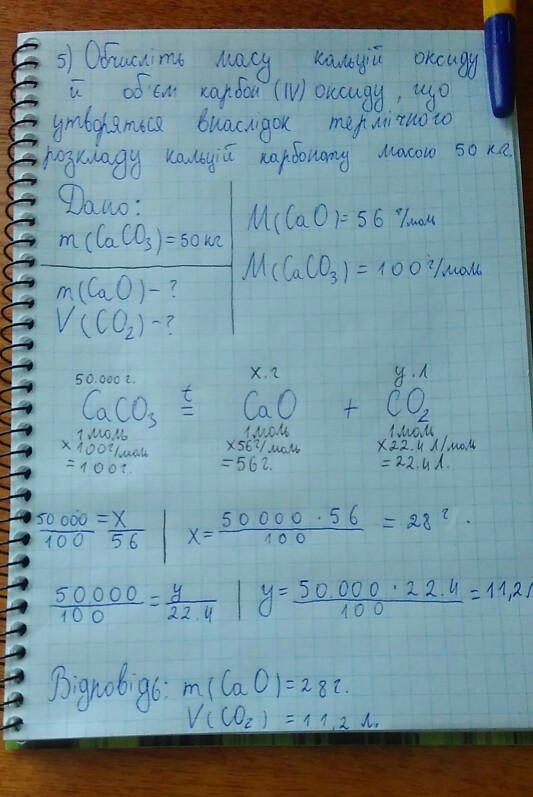 5) Обчисліть масу кальцій оксиду
й об'єм карбон (IV) оксиду, що
утворяться внаслідок термічного
розкладу кальцій карбонату масою 50 кг.
Дано:
m(CaCO₃)=50кг
m(CaO)-?
V(CO₂)-?
M(CaO)=56 г/моль
M(CaCO₃)=100г/моль
50.000г. x.г y.л
CaCO₃ t= CaO + CO₂
1моль 1моль 1моль
x100г/моль x56г/моль x22.4л/моль
=100г. =56г. =22.4л.
50 000/100 = x/56 | x= 50 000·56/100 = 28 г.
50.000/100 = y/22.4 | y= 50.000·22.4/100 = 11,2л
Відповідь: m(CaO)=28г.
V(CO₂) = 11,2 л.